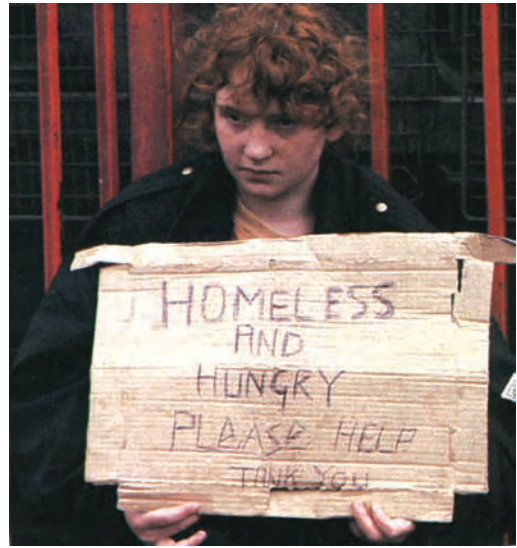 HOMELESS
AND
HUNGRY
PLEASE HELP
TANK YOU